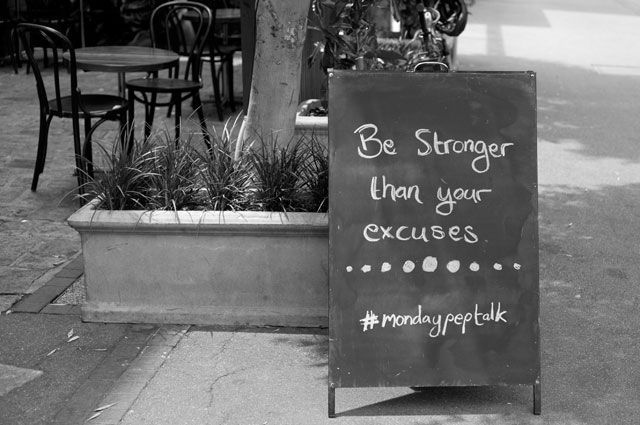 Be Stronger
than your
excuses.
#mondaypeptalk